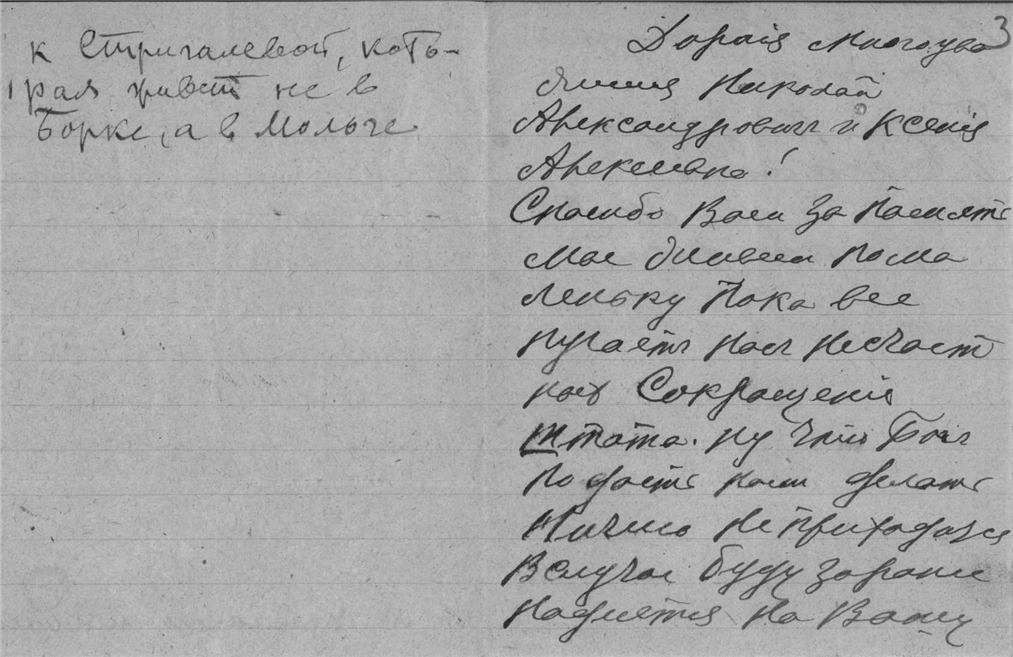 к Стригалевой, кото-
рая живет не в
Борке, а в Мольче.
3
Дорогия Многоува
жимия Николай
Александровичъ и Ксения
Алексевна!
Спасибо Вам за Память
мы живем пома
леньку Пока все
пугаетъ насъ несчаст
ное Сокращения
штата. ну Что Богъ
подасть нам делать
Ничево не приходится
В случае буду зарание
Надеятся На Вашу